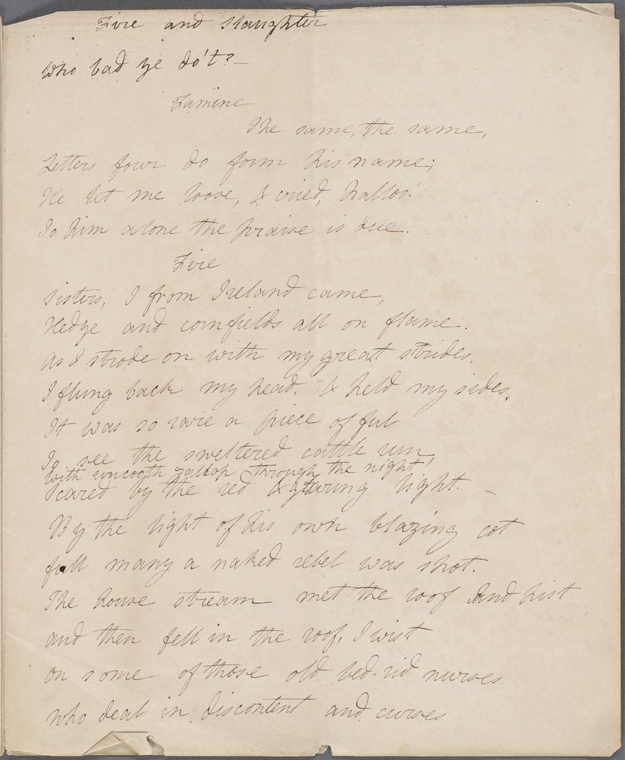 Fire and Slaughter
Who bad ye do't?—
Famine
The same, the same,
Letters four do form his name;
He let me loose, & cried, Halloo!
To him alone the praise is due.
Fire
Sisters, I from Ireland came,
Hedge and cornfields all on flame.
as I strode on with my great strides,
I flung back my head. & held my sides.
It was so rare a piece of ful
To see the sweltered cattle run,
with uncooth gallop through the night,
Scared by the red & glaring light.—
By the light of his own blazing cot
full many a naked rebel was shot.
The house stream met the roof and hist
and then fell in the roof, I wist
on some of those old bed-rid nurses
who deal in discontent and curses